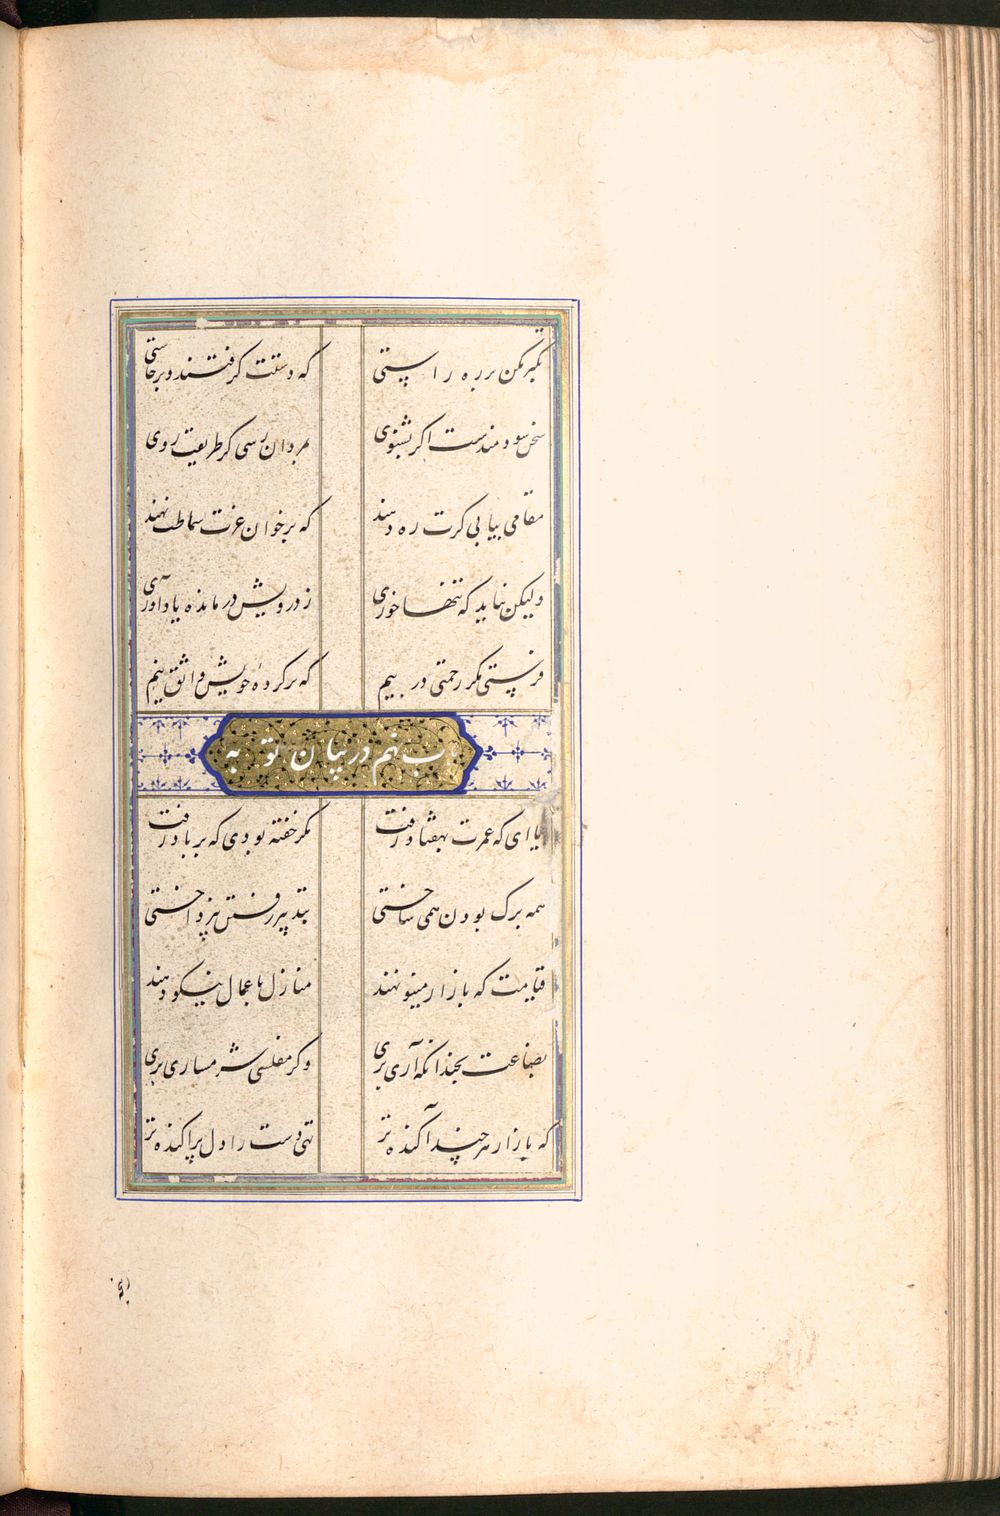 تکبر مکن بر ره راستی که دستت گرفتند و برخاستی
سخن سودمندست اگر بشنوی بمردان رسی گر طریقت روی
مقامی بیابی گرت ره دهند که بر خوان عزت سماطت نهند
ولیکن نباید که تنها خوری ز درویش درمانده یاد آوری
فرستی مگر رحمتی در پیم که بر کرده خویش واثق نیم
باب نهم در بیان توبه
بیا ای که عمرت بهفتاد رفت مگر خفته بودی که بر باد رفت
همه برگ بودن همی ساختی بتدبیر رفتن نپرداختی
قیامت که بازار مینو نهند منازل باعمال نیکو دهند
بضاعت بچندانکه آری بری وگر مفلسی شرمساری بری
که بازار هر چند آکنده تر تهی دست را دل پراکنده تر